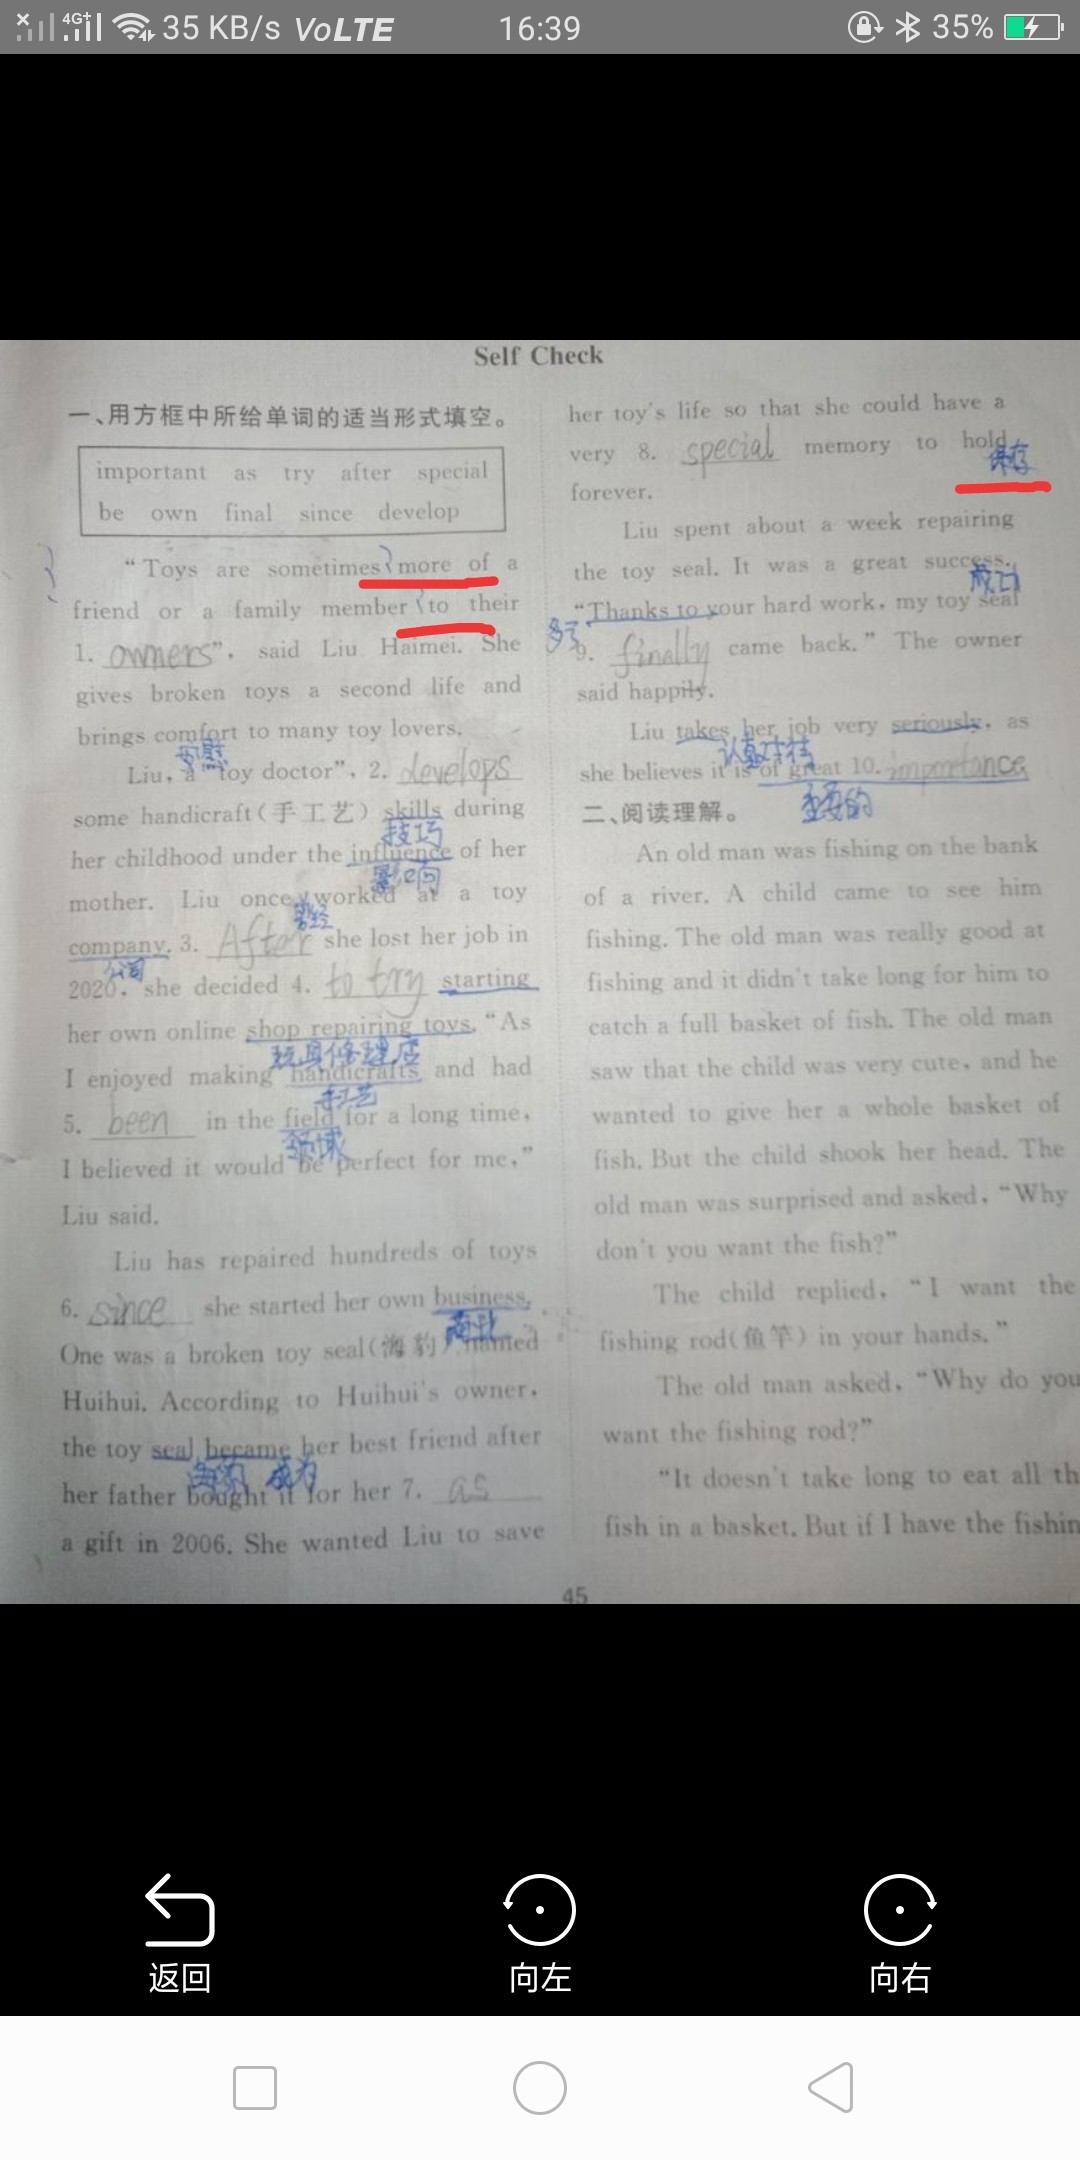 35 KB/s VoLTE 16:39 35%
4G+
Self Check
一、用方框中所给单词的适当形式填空。
important as try after special
be own final since develop
“Toys are sometimes more of a
friend or a family member to their
1. owners”, said Liu Haimei. She
gives broken toys a second life and
brings comfort to many toy lovers.
安慰
Liu, a “toy doctor”, 2. develops
some handicraft(手工艺) skills during
技巧
her childhood under the influence of her
影响
mother. Liu once worked at a toy
曾经
company. 3. After she lost her job in
公司
2020, she decided 4. to try starting
her own online shop repairing toys. “As
玩具修理店
I enjoyed making handicrafts and had
手工艺
5. been in the field for a long time,
领域
I believed it would be perfect for me,”
Liu said.
Liu has repaired hundreds of toys
6. since she started her own business.
商业
One was a broken toy seal(海豹) named
Huihui. According to Huihui's owner,
the toy seal became her best friend after
海豹 成为
her father bought it for her 7. as
a gift in 2006. She wanted Liu to save
her toy's life so that she could have a
very 8. special memory to hold
保存
forever.
Liu spent about a week repairing
the toy seal. It was a great success.
成功
“Thanks to your hard work, my toy seal
多亏
9. finally came back.” The owner
said happily.
Liu takes her job very seriously, as
认真对待
she believes it is of great 10. importance.
重要的
二、阅读理解。
An old man was fishing on the bank
of a river. A child came to see him
fishing. The old man was really good at
fishing and it didn't take long for him to
catch a full basket of fish. The old man
saw that the child was very cute, and he
wanted to give her a whole basket of
fish. But the child shook her head. The
old man was surprised and asked, “Why
don't you want the fish?”
The child replied, “I want the
fishing rod(鱼竿) in your hands.”
The old man asked, “Why do you
want the fishing rod?”
“It doesn't take long to eat all th
fish in a basket. But if I have the fishin
45
返回 向左 向右